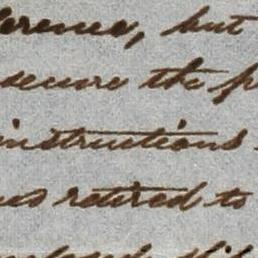 ference, but
secure the p
instructions
us retired to